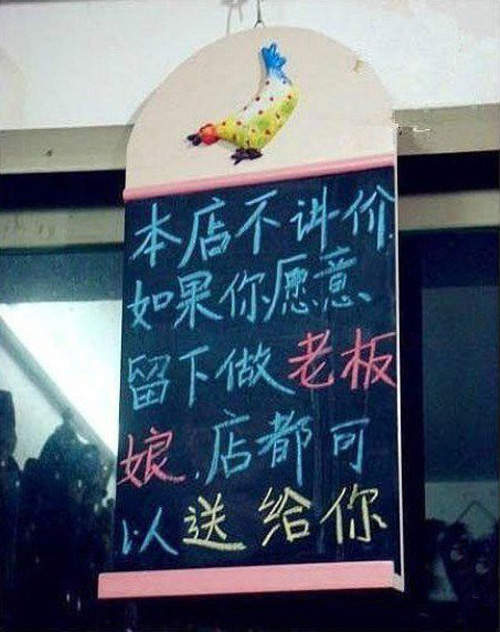 本店不讲价
如果你愿意
留下做老板
娘,店都可
以人送给你